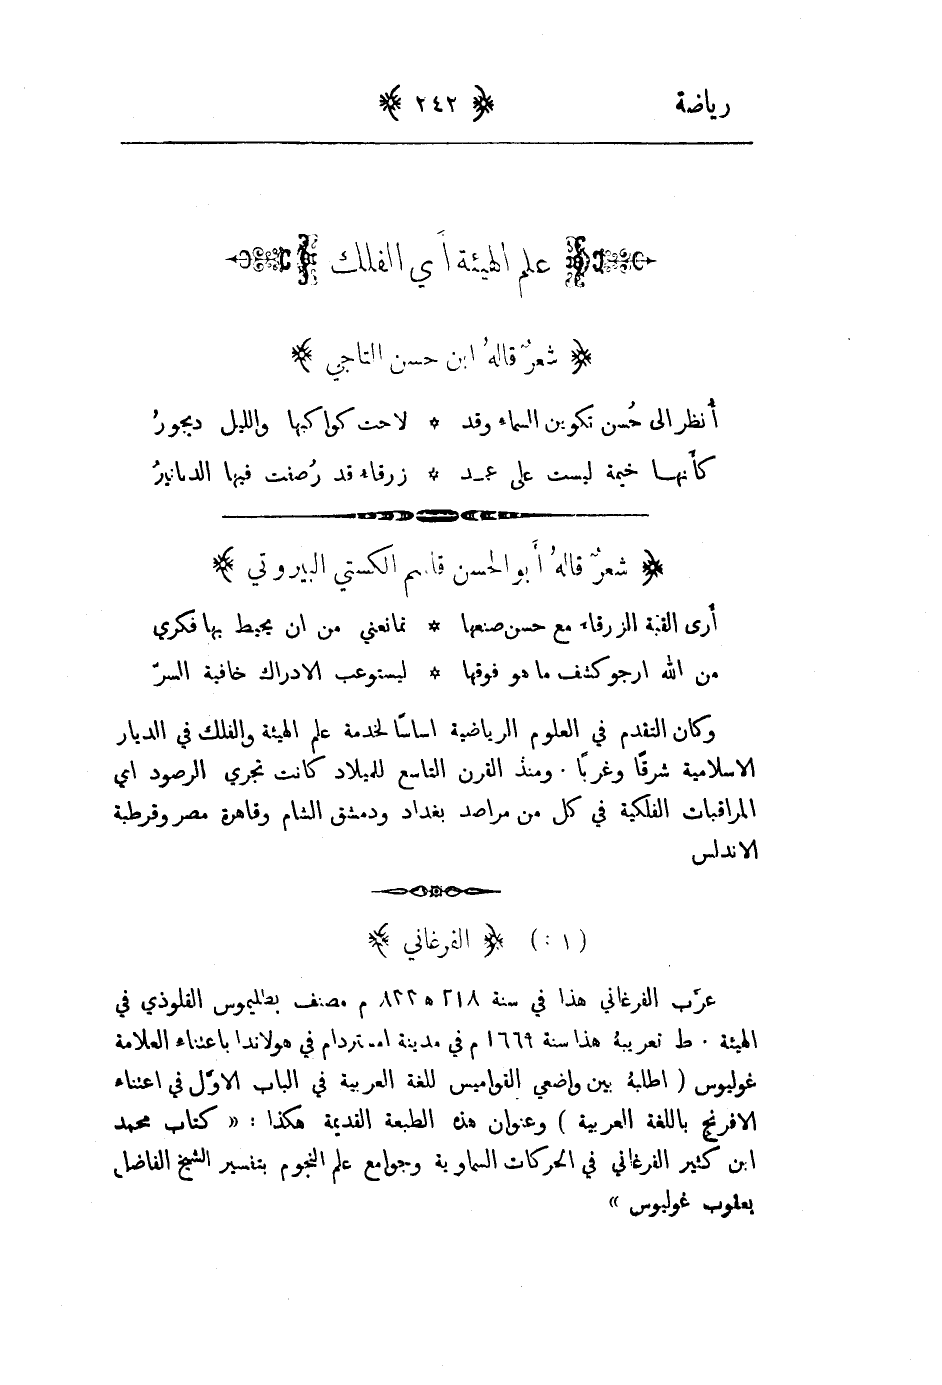 رياضة ﴿ ٢٤٢ ﴾
علم الهيئة أي الفلك
﴿ شعرٌ قالهُ ابن حسن التاجي ﴾
أنظر الى حُسن تكوين السماء وقد * لاحت كواكبها والليل ديجورُ
كأنها خيمة ليست على عمد * زرقاء قد رُصفت فيها الدنانيرُ
﴿ شعرٌ قالهُ أبو الحسن قاسم الكستي البيروتي ﴾
أرى القبة الزرقاء مع حسن صنعها * تمانعني من ان يحيط بها فكري
من الله ارجو كشف ما هو فوقها * ليستوعب الادراك خافية السرّ
وكان التقدم في العلوم الرياضية اساسًا لخدمة علم الهيئة والفلك في الديار
الاسلامية شرقًا وغربًا . ومنذ القرن التاسع للميلاد كانت تجري الرصود اي
المراقبات الفلكية في كل من مراصد بغداد ودمشق الشام وقاهرة مصر وقرطبة
الاندلس
( ١ : ) ﴿ الفرغاني ﴾
عرّب الفرغاني هذا في سنة ٢١٨ ه ٨٢٢ م مصنف بطليموس القلوذي في
الهيئة . ط تعريبهُ هذا سنة ١٦٦٩ م في مدينة امستردام في هولاندا باعتناء العلامة
غوليوس ( اطلبهُ بين واضعي القواميس للغة العربية في الباب الاوّل في اعتناء
الافرنج باللغة العربية ) وعنوان هذه الطبعة القديمة هكذا : « كتاب محمد
ابن كثير الفرغاني في الحركات السماوية وجوامع علم النجوم بتفسير الشيخ الفاضل
يعقوب غوليوس »